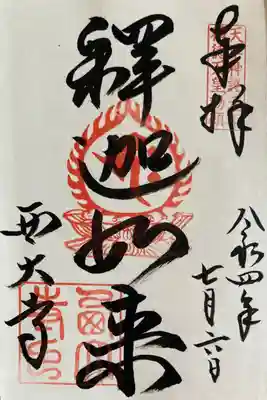 奉拝
令和四年
七月六日
釋迦如来
西大寺